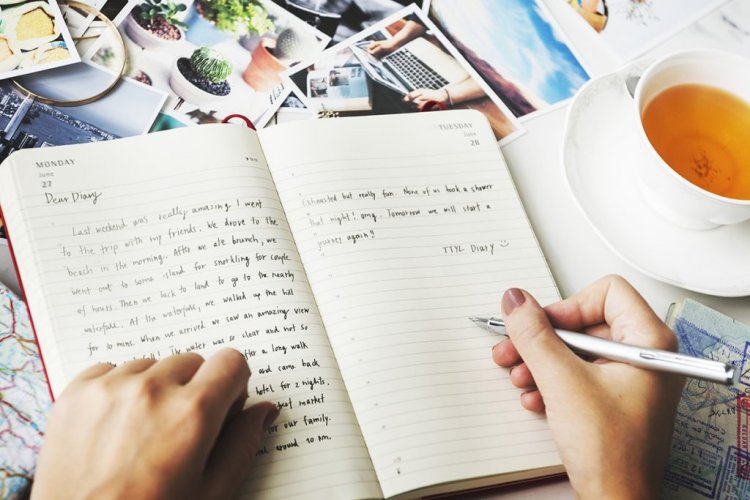 MONDAY
June
27
Dear Diary
Last weekend was really amazing. I went
to the trip with my friends. We drove to the
beach in the morning. After we ate brunch, we
went out to some island for snorkling for couple
of hours. Then we back to land to go to the nearby
waterfall. At the waterfall, we walked up the hill
for 10 mins. When we arrived, we saw an amazing view
The water was so clear and not so
after a long walk
and came back
hotel for 2 nights.
market
for our family.
around 10 pm.
TUESDAY
June
28
Exhausted but really fun. None of us book a shower
that night! omg. Tomorrow we will start a
journey again!!
TTYL Diary